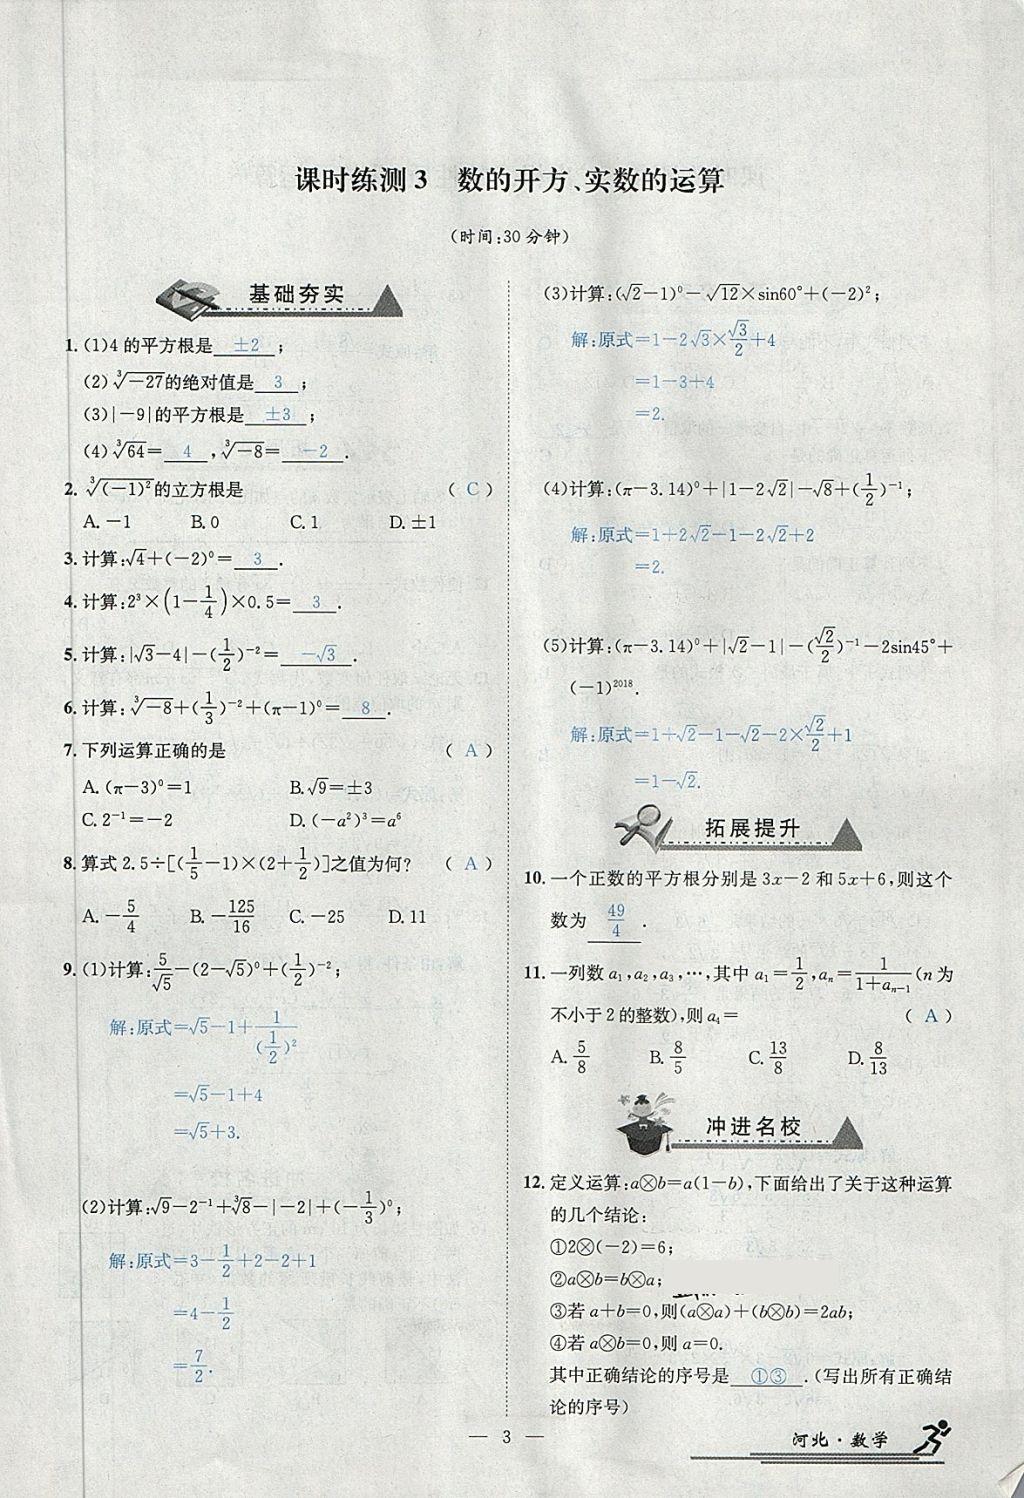 课时练测3 数的开方、实数的运算
(时间:30分钟)
基础夯实
1. (1)4的平方根是 ±2 ;
(2)∛-27的绝对值是 3 ;
(3)|-9|的平方根是 ±3 ;
(4)∛64= 4 ,∛-8= -2 .
2. ∛(-1)²的立方根是 ( C )
A. -1 B. 0 C. 1 D. ±1
3. 计算:√4+(-2)⁰= 3 .
4. 计算:2³×(1-1/4)×0.5= 3 .
5. 计算:|√3-4|-(1/2)⁻²= -√3 .
6. 计算:∛-8+(1/3)⁻²+(π-1)⁰= 8 .
7. 下列运算正确的是 ( A )
A. (π-3)⁰=1 B. √9=±3
C. 2⁻¹=-2 D. (-a²)³=a⁶
8. 算式2.5÷[(1/5-1)×(2+1/2)]之值为何? ( A )
A. -5/4 B. -125/16 C. -25 D. 11
9. (1)计算:5/√5-(2-√5)⁰+(1/2)⁻²;
解:原式=√5-1+1/(1/2)²
=√5-1+4
=√5+3.
(2)计算:√9-2⁻¹+∛8-|-2|+(-1/3)⁰;
解:原式=3-1/2+2-2+1
=4-1/2
=7/2.
(3)计算:(√2-1)⁰-√12×sin60°+(-2)²;
解:原式=1-2√3×√3/2+4
=1-3+4
=2.
(4)计算:(π-3.14)⁰+|1-2√2|-√8+(1/2)⁻¹;
解:原式=1+2√2-1-2√2+2
=2.
(5)计算:(π-3.14)⁰+|√2-1|-(√2/2)⁻¹-2sin45°+
(-1)²⁰¹⁸.
解:原式=1+√2-1-√2-2×√2/2+1
=1-√2.
拓展提升
10. 一个正数的平方根分别是3x-2和5x+6,则这个
数为 49/4 .
11. 一列数a₁,a₂,a₃,…,其中a₁=1/2,aₙ=1/(1+aₙ₋₁)(n为
不小于2的整数),则a₄= ( A )
A. 5/8 B. 8/5 C. 13/8 D. 8/13
冲进名校
12. 定义运算:a⊗b=a(1-b),下面给出了关于这种运算
的几个结论:
①2⊗(-2)=6;
②a⊗b=b⊗a;
③若a+b=0,则(a⊗a)+(b⊗b)=2ab;
④若a⊗b=0,则a=0.
其中正确结论的序号是 ①③ .(写出所有正确结
论的序号)
— 3 —
河北·数学